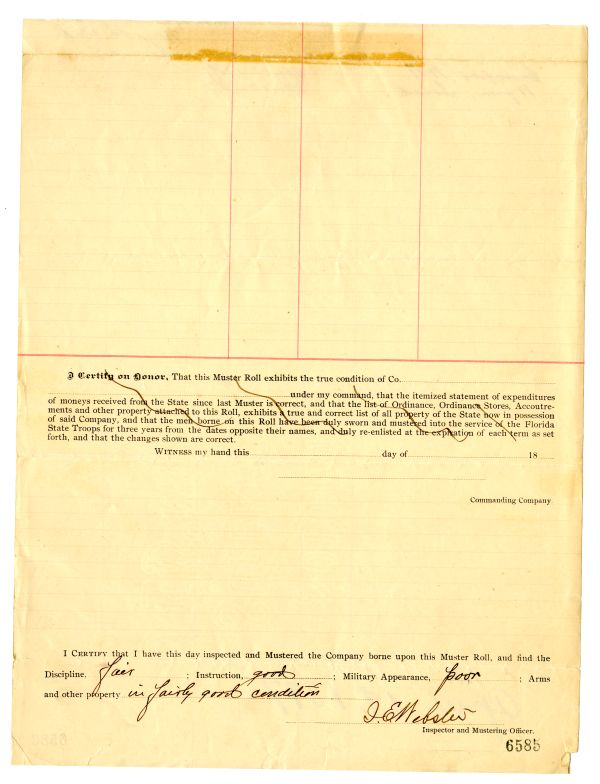 I Certify on Honor, That this Muster Roll exhibits the true condition of Co.
under my command, that the itemized statement of expenditures
of moneys received from the State since last Muster is correct, and that the list of Ordinance, Ordinance Stores, Accoutre-
ments and other property attached to this Roll, exhibits a true and correct list of all property of the State now in possession
of said Company, and that the men borne on this Roll have been duly sworn and mustered into the service of the Florida
State Troops for three years from the dates opposite their names, and duly re-enlisted at the expiration of each term as set
forth, and that the changes shown are correct.
WITNESS my hand this day of 18
Commanding Company
I CERTIFY that I have this day inspected and Mustered the Company borne upon this Muster Roll, and find the
Discipline, fair ; Instruction, good ; Military Appearance, poor ; Arms
and other property in fairly good condition
J. E Webster
Inspector and Mustering Officer.
6585